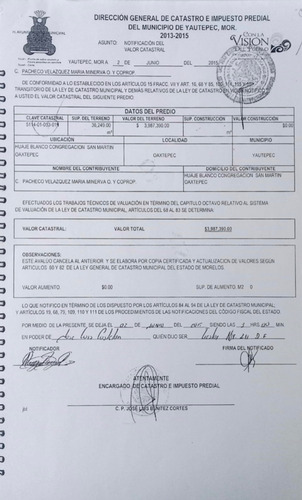 DIRECCIÓN GENERAL DE CATASTRO E IMPUESTO PREDIAL
DEL MUNICIPIO DE YAUTEPEC, MOR.
2013-2015
CON LA
VISIÓN
ASUNTO: NOTIFICACIÓN DEL
VALOR CATASTRAL
YAUTEPEC, MOR A 2 DE JUNIO DEL 2015
C. PACHECO VELAZQUEZ MARIA MINERVA O. Y COPROP
DE CONFORMIDAD A LO ESTABLECIDO EN LOS ARTICULOS 15 FRACC. VII Y ART. 16, 60 Y
TRANSITORIO DE LA LEY DE CATASTRO MUNICIPAL Y DEMÁS RELATIVOS DE LA LEY DE CATASTRO
A USTED EL VALOR CATASTRAL DEL SIGUIENTE PREDIO:
DATOS DEL PREDIO
CLAVE CATASTRAL SUP. DEL TERRENO VALOR DEL TERRENO SUP. CONSTRUCCIÓN VALOR CONSTRUCCIÓN
m² $ 3,987,390.00 m² $0.00
UBICACIÓN LOCALIDAD MUNICIPIO
HUAJE BLANCO CONGREGACION SAN MARTIN
OAXTEPEC OAXTEPEC YAUTEPEC
NOMBRE DEL CONTRIBUYENTE DOMICILIO DEL CONTRIBUYENTE
HUAJE BLANCO CONGREGACION SAN MARTIN
OAXTEPEC
C. PACHECO VELAZQUEZ MARIA MINERVA O. Y COPROP
EFECTUADOS LOS TRABAJOS TÉCNICOS DE VALUACIÓN EN TÉRMINO DEL CAPITULO OCTAVO RELATIVO AL SISTEMA
DE VALUACIÓN DE LA LEY DE CATASTRO MUNICIPAL, ARTICULOS DEL 68 AL 83 SE DETERMINA
VALOR CATASTRAL: VALOR TOTAL $3,987,390.00
OBSERVACIONES:
ESTE AVALUO CANCELA AL ANTERIOR Y SE ELABORA POR COPIA CERTIFICADA Y ACTUALIZACION DE VALORES SEGUN
ARTICULOS 60 Y 82 DE LA LEY GENERAL DE CATASTRO MUNICIPAL DEL ESTADO DE MORELOS
VALOR AUMENTO $0.00 SUP. DE AUMENTO M2 0
LO QUE NOTIFICO EN TÉRMINO DE LOS DISPUESTO POR LOS ARTÍCULOS 84 AL 94 DE LA LEY DE CATASTRO MUNICIPAL,
Y ARTÍCULOS 19, 68, 79, 109, 110 Y 111 DE LOS PROCEDIMIENTOS DE LAS NOTIFICACIONES DEL CÓDIGO FISCAL DEL ESTADO.
POR MEDIO DE LA PRESENTE SE DEJA EL 02 DE Junio DEL 2015 SIENDO LAS HRS.
EN PODER DE Jose Luis QUIEN DIJO SER
NOTIFICADOR FIRMA DEL NOTIFICADO
ATENTAMENTE
ENCARGADO DE CATASTRO E IMPUESTO PREDIAL
C. P. JOSE LUIS BENITEZ CORTES